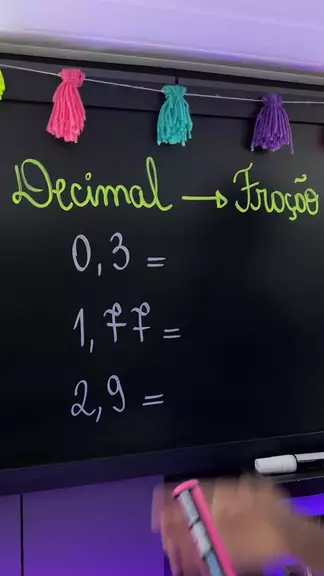 Decimal → Fração
0,3 =
1,77 =
2,9 =